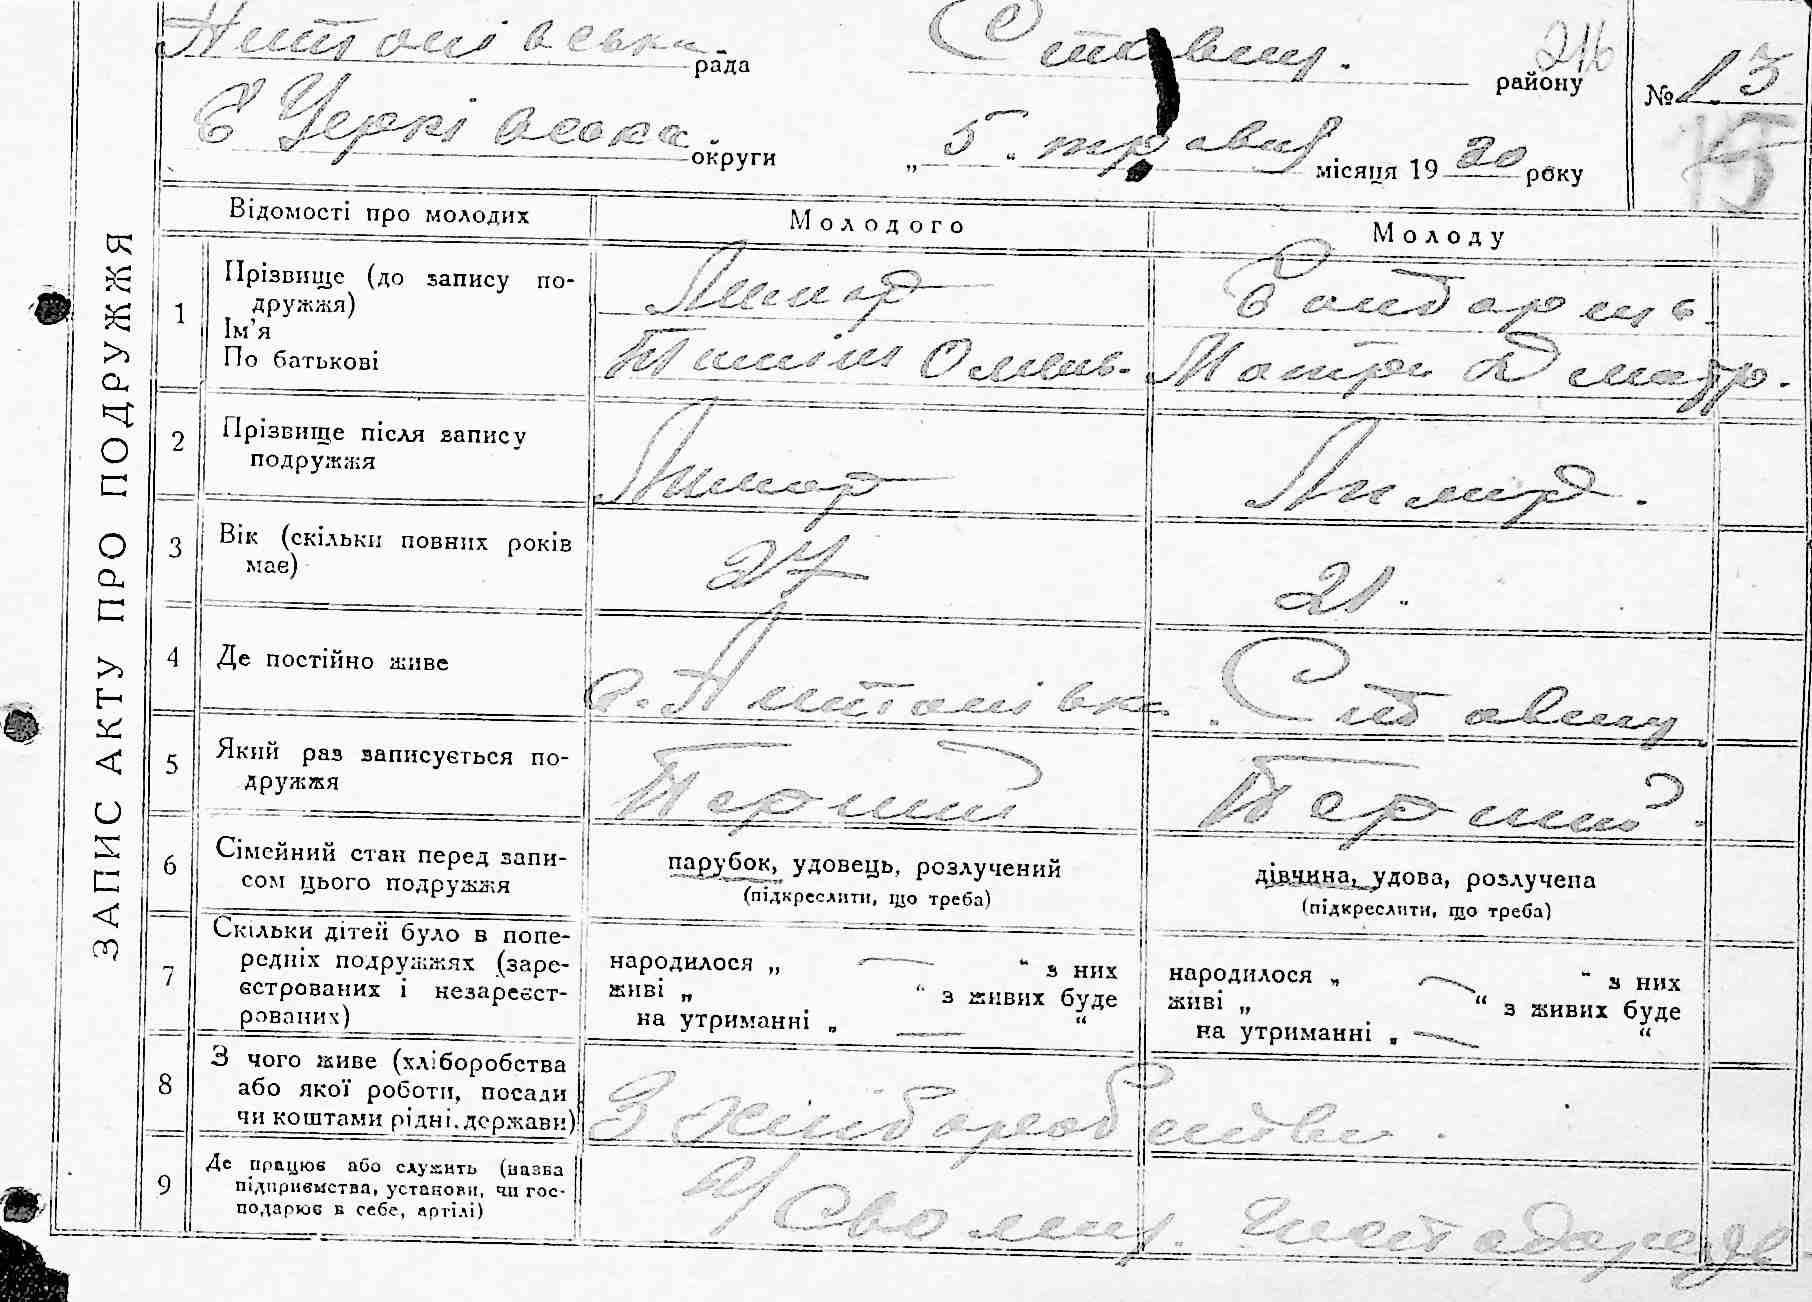 Антонівська рада Ставищ. району 216 № 13
Б Церківська. округи „ 5 " травня місяця 19 30 року 15
ЗАПИС АКТУ ПРО ПОДРУЖЖЯ
Відомості про молодих Молодого Молоду
1 Прізвище (до запису по-
дружжя)
Ім'я
По батькові
Лимар Бондарець.
Омел. Мотря Дмитр.
2 Прізвище після запису
подружжя
Лимар Лимар.
3 Вік (скільки повних років
має)
27 21.
4 Де постійно живе
с. Антонівка. Ставищу
5 Який раз записується по-
дружжя
Перший Перший.
6 Сімейний стан перед запи-
сом цього подружжя
парубок, удовець, розлучений
(підкреслити, що треба)
дівчина, удова, розлучена
(підкреслити, що треба)
7 Скільки дітей було в попе-
редніх подружжях (заре-
єстрованих і незареєст-
рованих)
народилося „ — “ з них
живі „ “ з живих буде
на утриманні „ — “
народилося „ — “ з них
живі „ “ з живих буде
на утриманні „ — “
8 З чого живе (хліборобства
або якої роботи, посади
чи коштами рідні, держави)
З хліборобства.
9 Де працює або служить (назва
підприємства, установи, чи гос-
подарює в себе, артілі)
У своєму господарстві